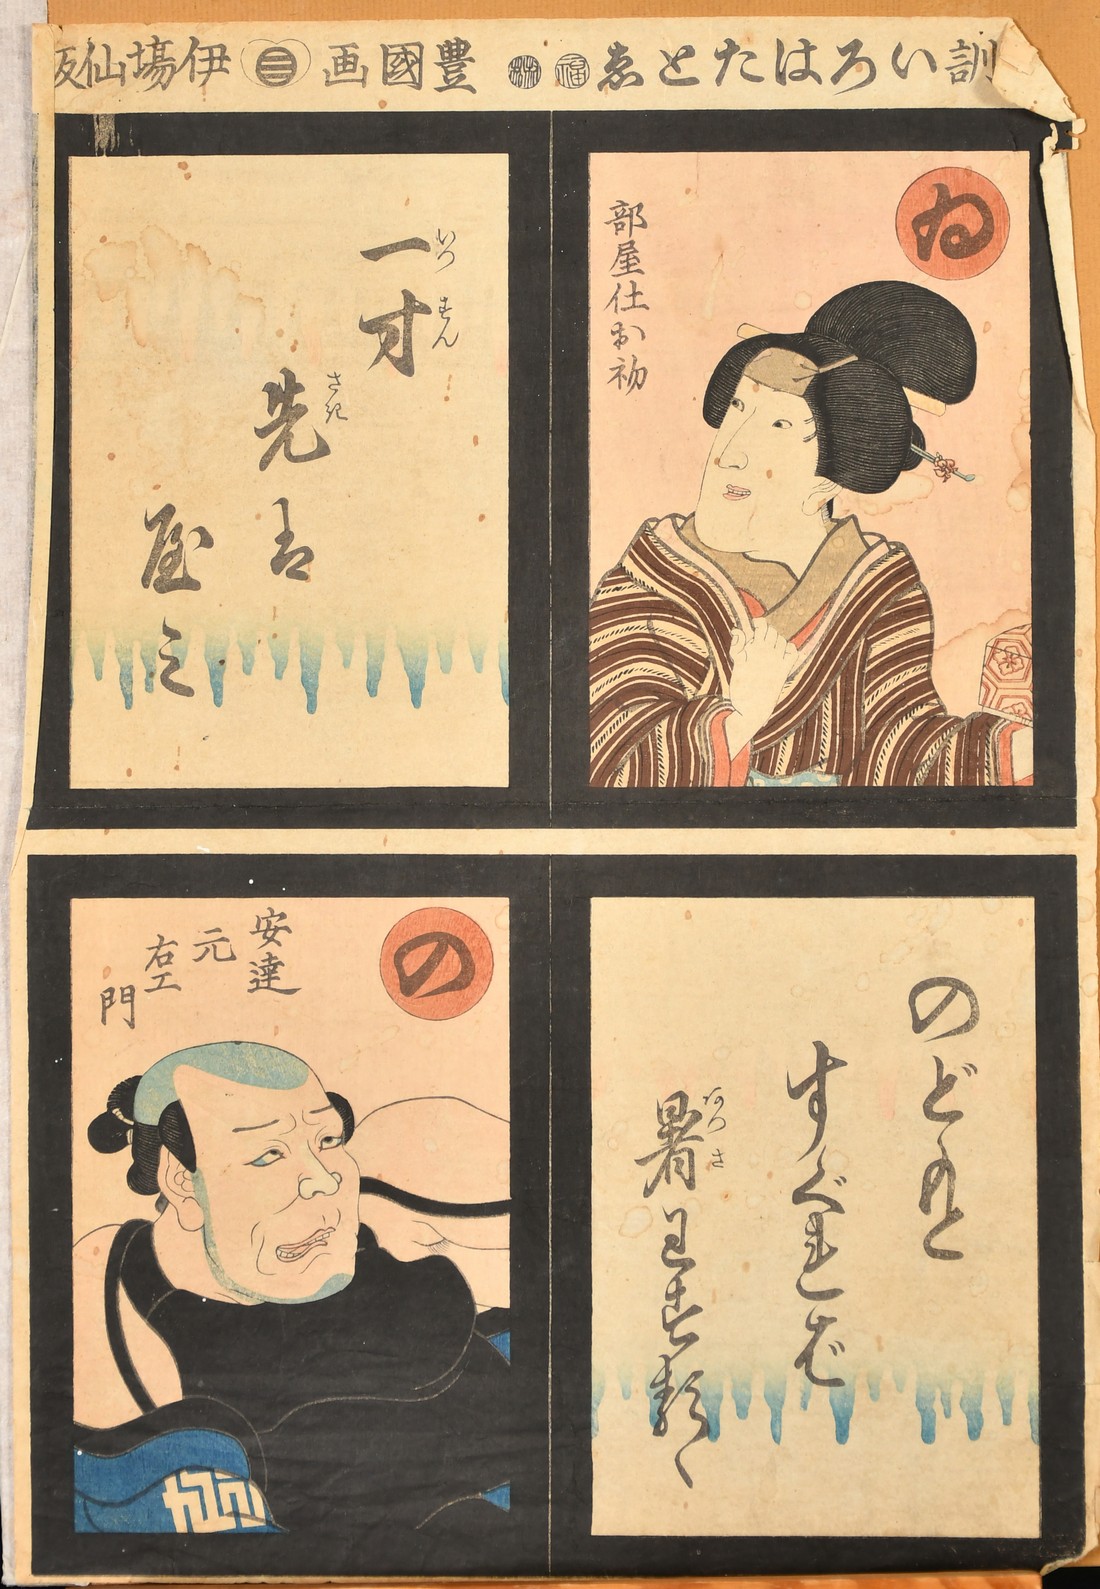 訓いろはたとゑ 福 豊國画 三 伊場仙板
ゐ
部屋仕お初
一寸
いつすん
先は
さき
屋ミ
のどもと
すぐれば
暑わするゝ
あつさ
の
安達
元
右エ
門